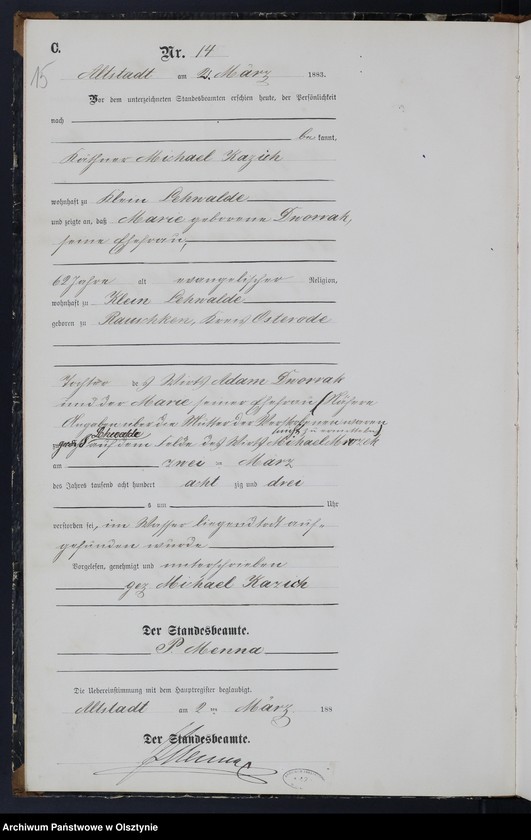 C.
Nr. 14
15
Altstadt am 2. März 1883.
Vor dem unterzeichneten Standesbeamten erschien heute, der Persönlichkeit
nach
be kannt,
Käthner Michael Kazich
wohnhaft zu Klein Lehwalde
und zeigte an, daß Marie geborene
seine Ehefrau,
62 Jahre alt evangelischer Religion,
wohnhaft zu Klein Lehwalde
geboren zu Rauschken, Kreis Osterode
Tochter des Wirts Adam
und der Marie seiner Ehefrau (Nähere
Angaben über die Mutter der Verstorbenen waren
nicht zu ermitteln)
Lehwalde auf dem Felde des Wirts Michael Mrozek
am zwei März
des Jahres tausend acht hundert acht zig und drei
um Uhr
verstorben sei, im Wasser liegend todt auf-
gefunden wurde
Vorgelesen, genehmigt und unterschrieben
gez Michael Kazich
Der Standesbeamte.
P. Menna
Die Uebereinstimmung mit dem Hauptregister beglaubigt.
Altstadt am 2 ten März 188
Der Standesbeamte.
Menna
Archiwum Państwowe w Olsztynie